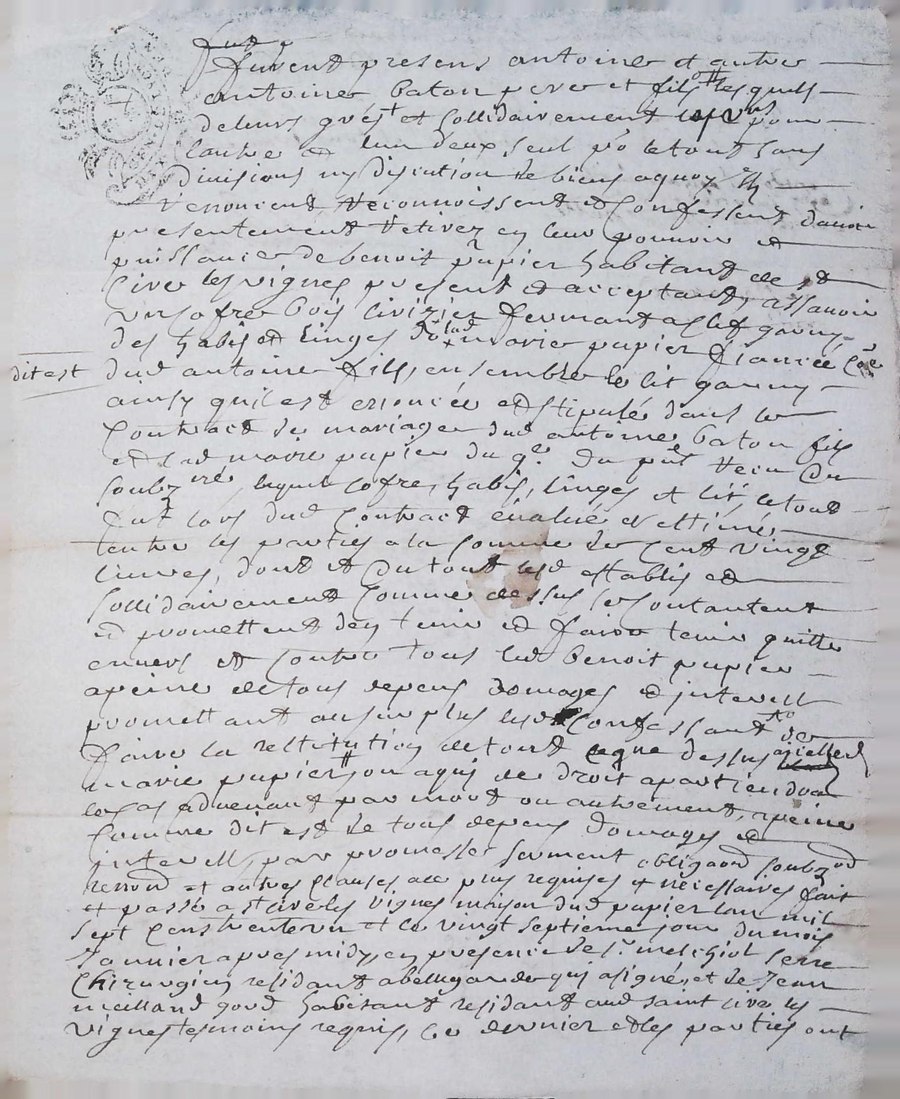 furent presens antoine et autre
antoine baton pere et fils lesquels
de leurs grés et sollidairement pour
lautre et lun deux seul po le tout sans
divisions ny discution de biens a quoy ils
renoncent, reconnoissent et confessent davoir
presentement retirez en leur pouvoir et
puissance de benoit papier habitant de st
cire les vignes present et acceptant, assavoir
un cofre bois fermant a clef garny
des habis et linges de lad marie papier fiancée
dit est
dud antoine fils, ensemble le lit garny
ainsy quil est enoncée et stipulé dans le
contract de mariage dud antoine baton fils
et lad marie papier du du pnt recu du
soubzné, lequel cofre, habis, linges et lit le tout
fut lors dud contract évalué et estimé
entre les parties a la somme de cent vingt
livres, dont et du tout lesd establis et
sollidairement comme dessus se contantent
et promettent den tenir et faire tenir quitte
envers et contre tous led benoit papier
a peine de tous depens domages et interest
promettant au surplus lesd confessant de
faire la restitution de tout ce que dessus a icelle
marie papier ou a qui de droit apartiendra
le cas advenant par mort ou autrement, a peine
comme dit est de tous depens domages et
interest, par promesse serment obligaon soubzon
renon et autres clauses ace plus requises et nécessaires fait
et passé a st cire les vignes maison dud papier lan mil
sept cens trente et le vingt septieme jour du mois
Janvier apres midy, en presence de sr melchiol serre
chirurgien residant a qui a signé, et de Jean
habitant residant aud saint cire les
vignes tesmoins requis, ce dernier et les parties ont